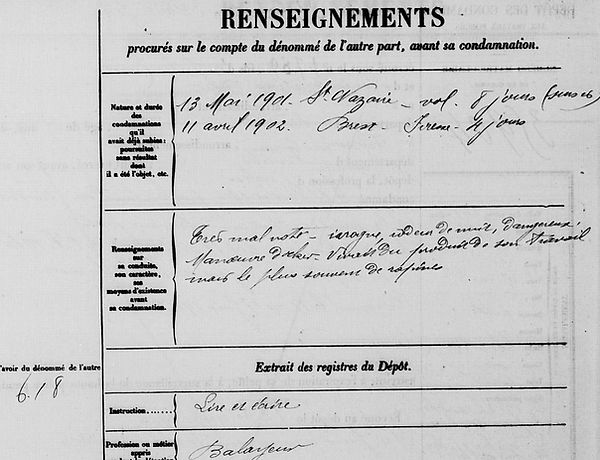 RENSEIGNEMENTS
procurés sur le compte du dénommé de l'autre part, avant sa condamnation.
Nature et durée
des
condamnations
qu'il
avait déjà subies;
poursuites
sans résultat
dont
il a été l'objet, etc.
13 Mai 1901 - St Nazaire - vol. 8 jours (sursis)
11 avril 1902. Brest - Ivresse - 2 jours
Renseignements
sur
sa conduite,
son caractère,
ses
moyens d'existence
avant
sa condamnation.
Très mal noté - ivrogne, rodeur de nuit, dangereux.
Manœuvre docker - Vivait du produit de son travail
mais le plus souvent de rapines
Avoir du dénommé de l'autre
6.18
Extrait des registres du Dépôt.
Instruction
Lire et écrire
Profession ou métier
appris
Balayeur